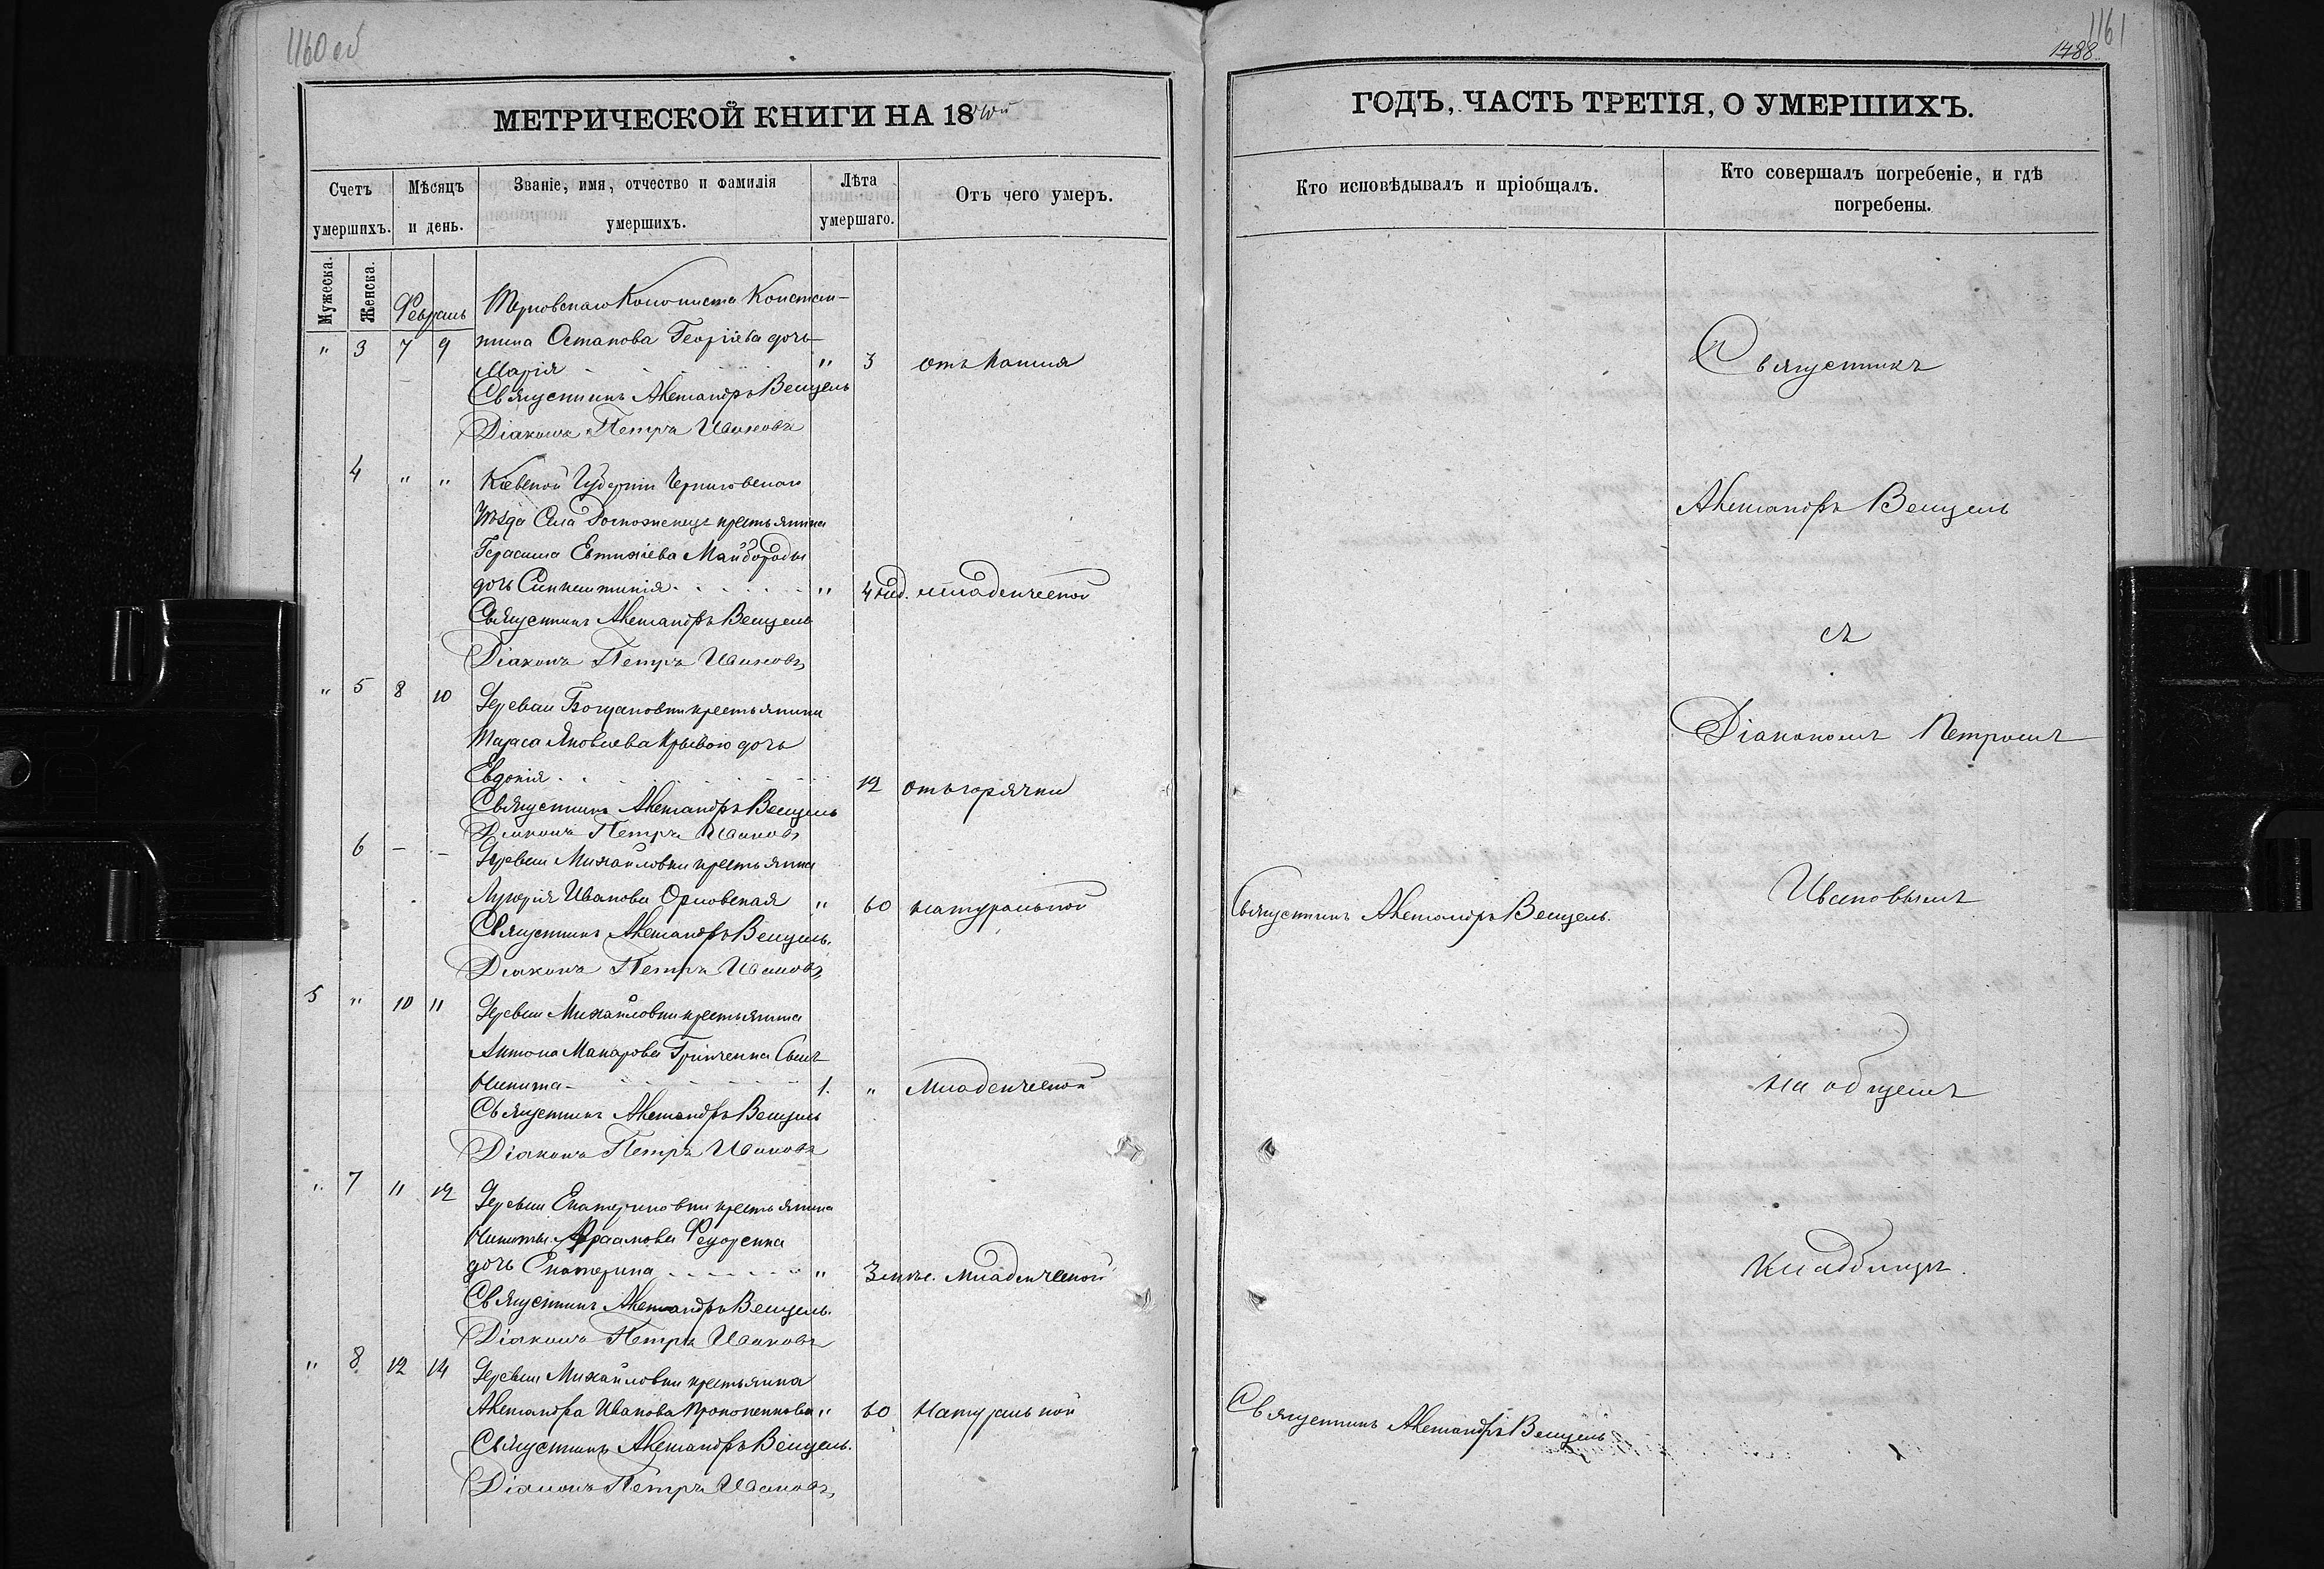 1160 об
МЕТРИЧЕСКОЙ КНИГИ НА 18
Счетъ умершихъ.
Мѣсяцъ и день.
Званіе, имя, отчество и фамилія умершихъ.
Лѣта умершаго.
Отъ чего умеръ.
Мужеска.
Женска.
Февраль
Терновскаго Колониста Констан-
" 3 7 9 тина Остапова Георгіева дочь
Марія " 3 отъ кашля
Священникъ Александръ Венцель
Діаконъ Петръ Ивановъ
4 " " Кіевской Губерніи Черниговскаго
Уѣзда Села крестьянина
Герасима Евтихіева Майбороды
дочь Синклитикія " 4 нед. младенческой
Священникъ Александръ Венцель
Діаконъ Петръ Ивановъ
" 5 8 10 Деревни Богдановки крестьянина
Тараса Яковлева Крывого дочь
Евдокія 12 отъ горячки
Священникъ Александръ Венцель
Діаконъ Петръ Ивановъ
6 - - Деревни Михайловки крестьянка
Лукерія Иванова Орловская " 60 натуральной
Священникъ Александръ Венцель.
Діаконъ Петръ Ивановъ
5 " 10 11 Деревни Михайловки крестьянина
Антона Макарова Гринченка Сынъ
Никита 1. " Младенческой
Священникъ Александръ Венцель
Діаконъ Петръ Ивановъ
" 7 11 12 Деревни Екатериновки крестьянина
Никиты Федоренка
дочь Екатерина " 3 Младенческой
Священникъ Александръ Венцель.
Діаконъ Петръ Ивановъ
" 8 12 14 Деревни Михайловки крестьянка
Александра Иванова Прокопенкова " 60 Натуральной
Священникъ Александръ Венцель.
Діаконъ Петръ Ивановъ
1161
1788
ГОДЪ, ЧАСТЬ ТРЕТІЯ, О УМЕРШИХЪ.
Кто исповѣдывалъ и пріобщалъ.
Кто совершалъ погребеніе, и гдѣ погребены.
Священникъ
Александръ Венцель
съ
Діакономъ Петромъ
Ивановымъ
Священникъ Александръ Венцель.
на общемъ
кладбищѣ.
Священникъ Александръ Венцель